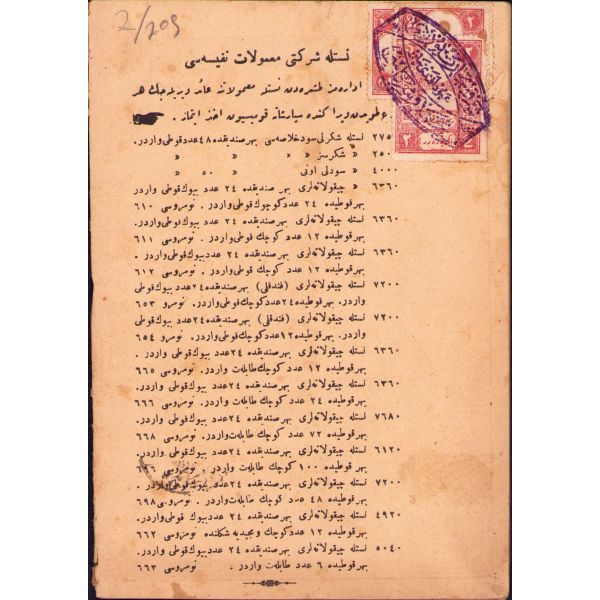 2/209
نستله شركتى معمولات نفيسه‌سى
اداره‌مز طشره‌دن نستله معمولاتنه عائد ويريله‌جك هر
طوپدن ويراكنده سپارشاته قوميسيون اخذ ايتمز .
٢٧٥٠ نستله شكرلى سود خلاصه‌سى بهر صنديقده ٤٨ عدد قوطى واردر.
٢٥٠٠ » شكرسز » » » » »
٤٠٠٠ » سودلى اونى » » ٥٠ » »
٦٣٦٠ » چيقولاته‌لرى بهر صنديقده ٢٤ عدد بيوك قوطى واردر
بهر قوطيده ٢٤ عدد كوچوك قوطى واردر . نومروسى ٦١٠
٦٣٦٠ نستله چيقولاته‌لرى بهر صنديقده ٢٤ عدد بيوك قوطى واردر.
بهر قوطيده ١٢ عدد كوچك قوطى واردر . نومروسى ٦١١
٦٣٦٠ نستله چيقولاته‌لرى بهر صنديقده ٢٤ عدد بيوك قوطى واردر.
بهر قوطيده ١٢ عدد كوچك قوطى واردر . نومروسى ٦١٢
٧٢٠٠ نستله چيقولاته‌لرى (فندقلى) بهر صنديقده ٢٤ عدد بيوك قوطى
واردر. بهر قوطيده ٢٤ عدد كوچك قوطى واردر. نومرو ٦٥٣
٧٢٠٠ نستله چيقولاته‌لرى (فندقلى) بهر صنديقده ٢٤ عدد بيوك قوطى
واردر. بهر قوطيده ١٢ عدد كوچك قوطى واردر. نومرو ٦٥٤
٦٣٦٠ نستله چيقولاته‌لرى بهر صنديقده ٢٤ عدد بيوك قوطى واردر.
بهر قوطيده ١٢ عدد كوچك طابله‌ت واردر. نومروسى ٦٦٥
٦٣٦٠ نستله چيقولاته‌لرى بهر صنديقده ٢٤ عدد بيوك قوطى واردر.
بهر قوطيده ٢٤ عدد كوچك طابله‌ت واردر. نومروسى ٦٦٦
٧٦٨٠ نستله چيقولاته‌لرى بهر صنديقده ٢٤ عدد بيوك قوطى واردر.
بهر قوطيده ٧٢ عدد كوچك طابله‌ت واردر. نومروسى ٦٦٨
٦١٢٠ نستله چيقولاته‌لرى بهر صنديقده ٢٤ عدد بيوك قوطى واردر.
بهر قوطيده ١٠٠ كوچك طابله‌ت واردر . نومروسى
٧٢٠٠ نستله چيقولاته‌لرى بهر صنديقده ٢٤ عدد بيوك قوطى واردر .
بهر قوطيده ٤٨ عدد كوچك طابله‌ت واردر . نومروسى ٦٩٨
٤٩٢٠ نستله چيقولاته‌لرى بهر صنديقده ٢٤ عدد بيوك قوطى واردر.
بهر قوطيده ١٢ عدد كوچك و مجيديه شكلنده نومروسى ٦٦٢
٥٠٤٠ نستله چيقولاته‌لرى بهر صنديقده ٢٤ عدد بيوك قوطى واردر.
بهر قوطيده ٦ عدد طابله‌ت واردر . نومروسى ٦٦٣